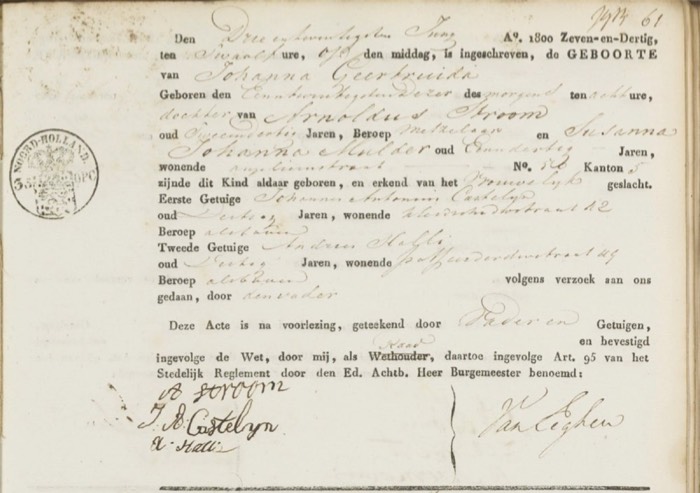 61
Den Drie en twintigsten Juny Aº. 1800 Zeven-en-Dertig,
ten Twaalf ure, op den middag, is ingeschreven, de GEBOORTE
van Johanna Geertruida
Geboren den Een en twintigsten dezer des morgens ten acht ure,
dochter van Arnoldus Stroom
oud Jaren, Beroep Metzelaar en Susanna
Johanna Mulder oud Jaren,
wonende No. Kanton 5
zijnde dit Kind aldaar geboren, en erkend van het Vrouwelyk geslacht.
Eerste Getuige Johannes Antonius Castelyn
oud Jaren, wonende 42
Beroep
Tweede Getuige Andries Halli
oud Jaren, wonende 49
Beroep volgens verzoek aan ons
gedaan, door den vader
Deze Acte is na voorlezing, geteekend door Vader en Getuigen,
en bevestigd
Raad
ingevolge de Wet, door mij, als Wethouder, daartoe ingevolge Art. 95 van het
Stedelijk Reglement door den Ed. Achtb. Heer Burgemeester benoemd:
A Stroom
J. A. Castelyn
A. Halli
Van Eeghen
NOORD-HOLLAND.
35 OPC